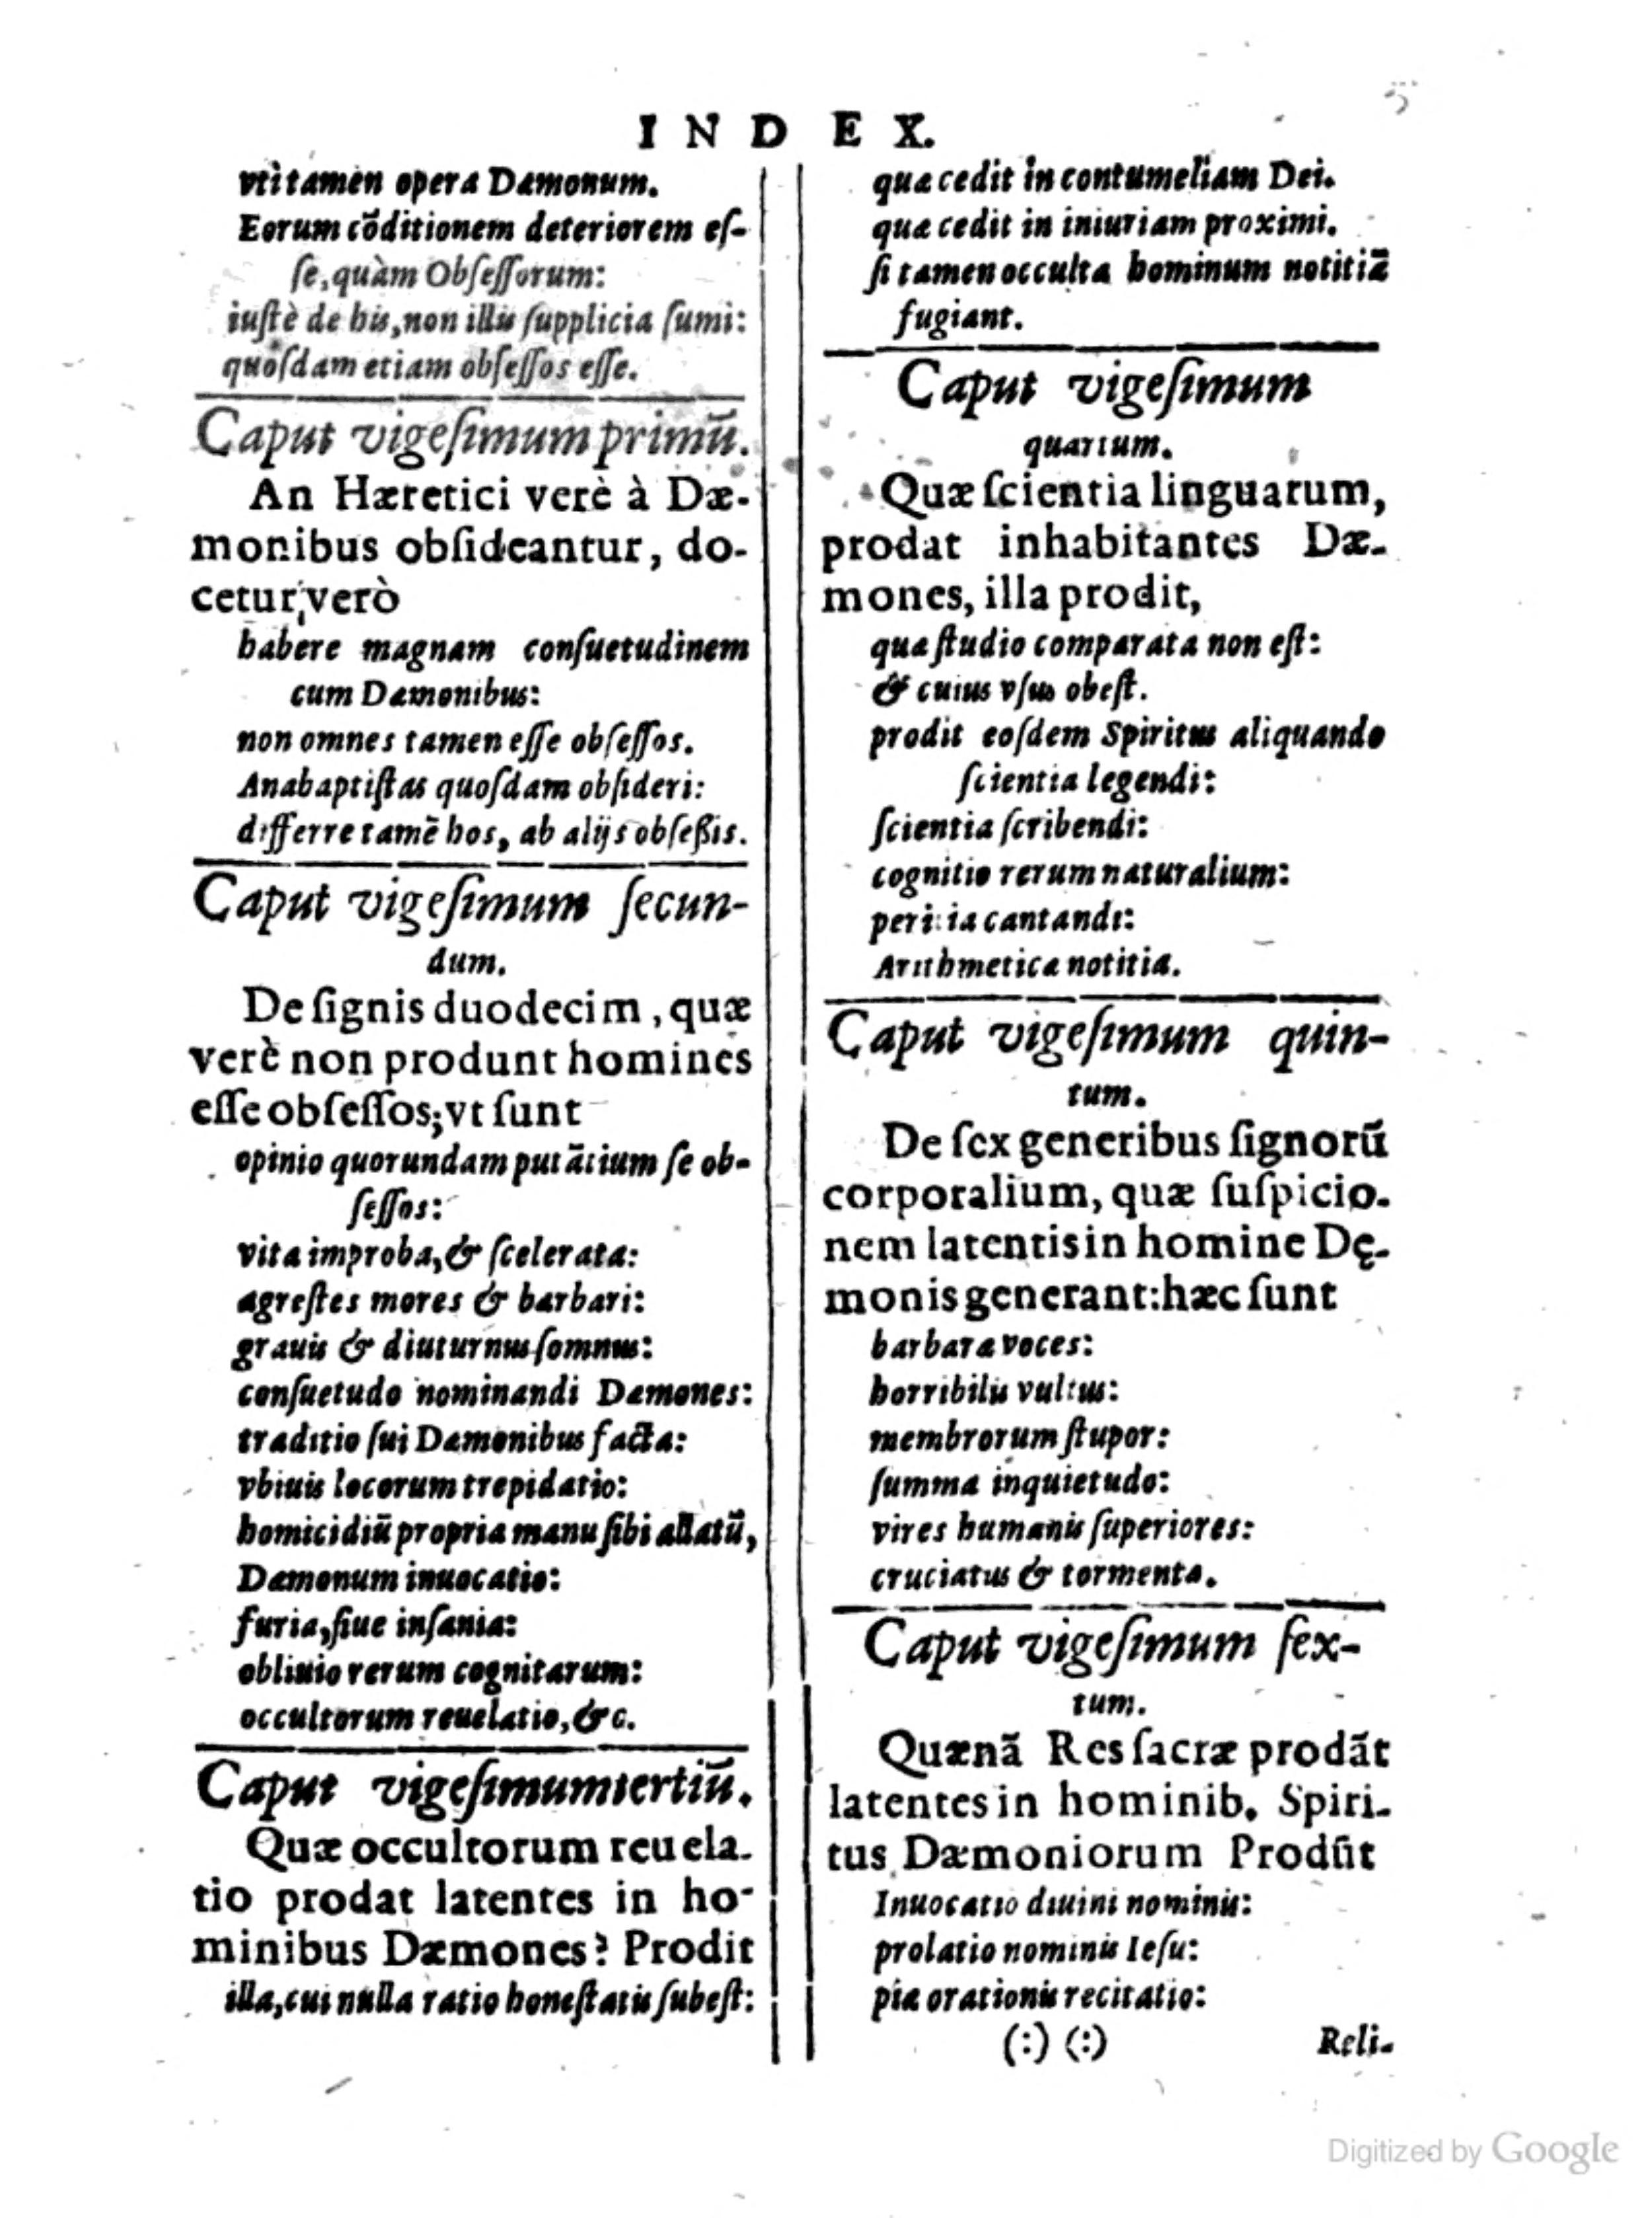 INDEX.
vti tamen opera Dæmonum.
Eorum cõditionem deteriorem eſ-
ſe, quàm Obſeſſorum:
iuſtè de his, non illis ſupplicia ſumi:
quoſdam etiam obſeſſos eſſe.
Caput vigeſimum primũ.
An Hæretici verè à Dæ-
monibus obſideantur, do-
cetur, verò
habere magnam conſuetudinem
cum Dæmonibus:
non omnes tamen eſſe obſeſſos.
Anabaptiſtas quoſdam obſideri:
differre tamẽ hos, ab alijs obſeßis.
Caput vigeſimum ſecun-
dum.
De ſignis duodecim, quæ
verè non produnt homines
eſſe obſeſſos; vt ſunt
opinio quorundam putãtium ſe ob-
ſeſſos:
vita improba, & ſcelerata:
agreſtes mores & barbari:
grauis & diuturnus ſomnus:
conſuetudo nominandi Dæmones:
traditio ſui Dæmonibus facta:
vbiuis locorum trepidatio:
homicidiũ propria manu ſibi allatũ,
Dæmonum inuocatio:
furia, ſiue inſania:
obliuio rerum cognitarum:
occultorum reuelatio, &c.
Caput vigeſimum tertiũ.
Quæ occultorum reuela-
tio prodat latentes in ho-
minibus Dæmones? Prodit
illa, cui nulla ratio honeſtatis ſubeſt:
quæ cedit in contumeliam Dei.
quæ cedit in iniuriam proximi.
ſi tamen occulta hominum notitiã
fugiant.
Caput vigeſimum
quartum.
Quæ ſcientia linguarum,
prodat inhabitantes Dæ-
mones, illa prodit,
quæ ſtudio comparata non eſt:
& cuius vſus obeſt.
prodit eoſdem Spiritus aliquando
ſcientia legendi:
ſcientia ſcribendi:
cognitio rerum naturalium:
peritia cantandi:
Arithmetica notitia.
Caput vigeſimum quin-
tum.
De ſex generibus ſignorũ
corporalium, quæ ſuſpicio-
nem latentis in homine Dę-
monis generant: hæc ſunt
barbaræ voces:
horribilis vultus:
membrorum ſtupor:
ſumma inquietudo:
vires humanis ſuperiores:
cruciatus & tormenta.
Caput vigeſimum ſex-
tum.
Quænã Res ſacræ prodãt
latentes in hominib. Spiri-
tus Dæmoniorum Prodũt
Inuocatio diuini nominis:
prolatio nominis Ieſu:
piæ orationis recitatio:
(:) (:) Reli-
Digitized by Google